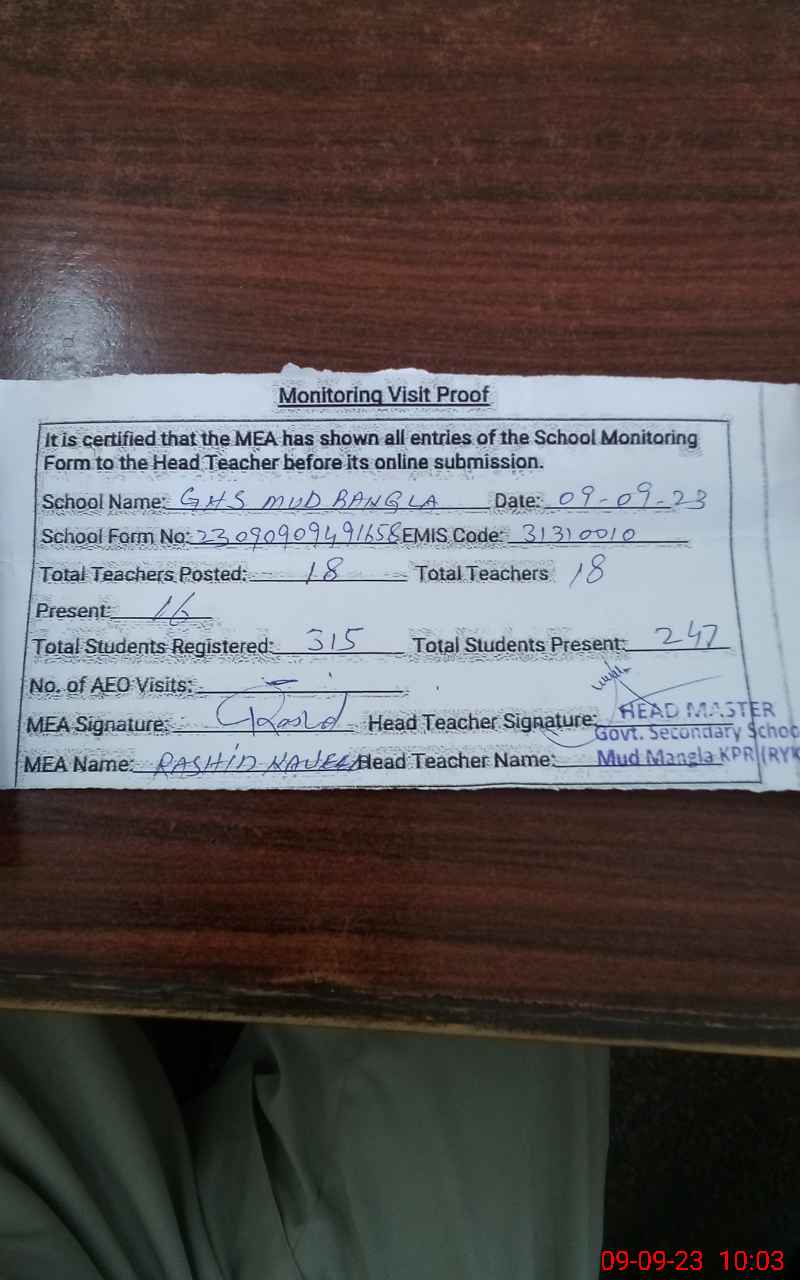 Monitoring Visit Proof
It is certified that the MEA has shown all entries of the School Monitoring
Form to the Head Teacher before its online submission.
School Name: GHS MUD BANGLA Date: 09-09-23
School Form No: 23090909491658 EMIS Code: 31310010
Total Teachers Posted: 18 Total Teachers 18
Present: 16
Total Students Registered: 315 Total Students Present: 247
No. of AEO Visits: -
MEA Signature: Rashid Head Teacher Signature:
HEAD MASTER
Govt. Secondary Schoo
MEA Name: RASHID NAVEED Head Teacher Name: Mud Mangla KPR (RYK
09-09-23 10:03